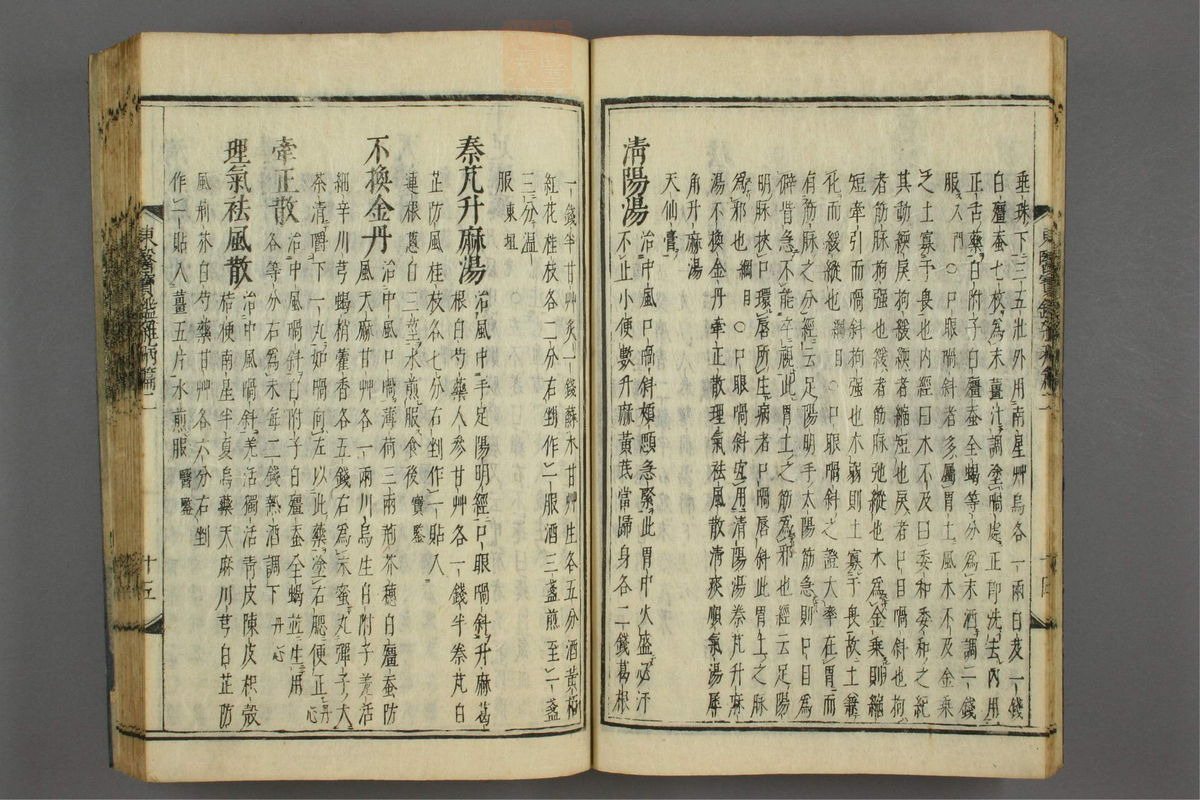 垂珠下三五泄外用南星艸烏各一兩白芨一錢
白殭蚕七枚爲末薑汁調塗喎處正卽洗去內用
正舌藥白附子白殭蚕全蝎等分爲末酒調二錢
服入門○口眼喎斜者多屬胃土風木不及金乘
之土寡于畏也內經曰木不及曰委和委和之紀
其動緛戾拘緩緛者縮短也戾者口目喎斜也拘
者筋脉拘强也緩者筋脉弛縱也木爲金乘則縮
短牽引而喎斜拘强也木弱則土寡于畏故土兼
化而緩縱也綱目○口眼喎斜之證大率在胃而
有筋脉之分經云足陽明手太陽筋急則口目爲
僻眥急不能卒視此胃土之筋爲邪也經云足陽
明脉挾口環唇所生病者口喎唇斜此胃土之脉
爲邪也綱目○口眼喎斜宜用淸陽湯秦艽升麻
湯不換金丹牽正散理氣袪風散淸痰順氣湯犀
角升麻湯
天仙膏
淸陽湯 治中風口喎斜頰顋急緊此胃中火盛必汗
不止小便數升麻黃芪當歸身各二錢葛根
一錢半甘艸灸一錢蘇木甘艸生各五分酒黃栢
紅花桂枝各二分右剉作一服酒三盞煎至一盞
三分溫
服東垣
秦艽升麻湯 治風中手足陽明經口眼喎斜升麻葛
根白芍藥人參甘艸各一錢半秦艽白
芷防風桂枝各七分右剉作一貼入
連根蔥白二莖水煎服食後寶鑑
不換金丹 治中風口喎薄荷三兩荊芥穗白殭蚕防
風天麻甘艸各一兩川烏生白附子羌活
細辛川芎蝎梢藿香各五錢右爲末蜜丸彈子大
茶淸嚼下一丸如喎向左以此藥塗右腮便正丹心
牽正散 治中風喎斜白附子白殭蚕全蝎並生用
各等分右爲末每二錢熱酒調下丹心
理氣袪風散 治中風喎斜羌活獨活靑皮陳皮枳殼
桔梗南星半夏烏藥天麻川芎白芷防
風荊芥白芍藥甘艸各六分右剉
作一貼入薑五片水煎服醫鑑
東醫寶鑑雜病篇二
十五